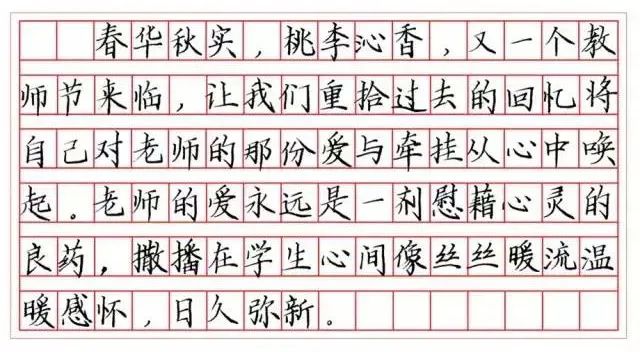 春华秋实，桃李沁香，又一个教
师节来临，让我们重拾过去的回忆将
自己对老师的那份爱与牵挂从心中唤
起。老师的爱永远是一剂慰藉心灵的
良药，撒播在学生心间像丝丝暖流温
暖感怀，日久弥新。